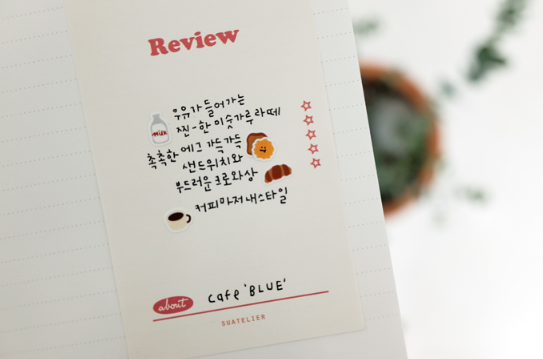 Review
우유가 들어가는
찐-한 미숫가루 라떼
milk
촉촉한 에그 가득가득
샌드위치와
부드러운 크로와상
커피마저 내스타일
about cafe 'BLUE'
SUATELIER